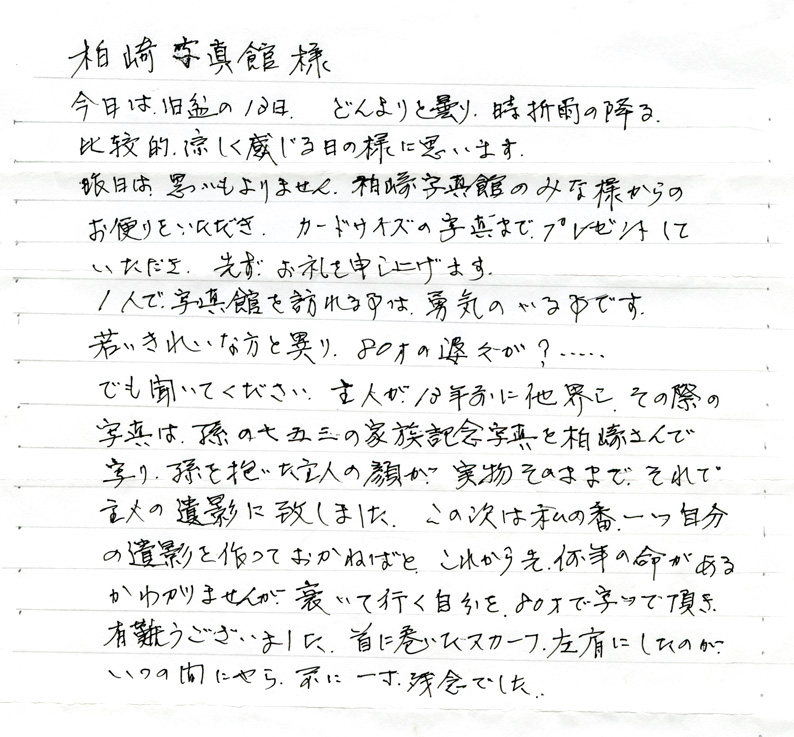 柏崎写真館様
今日は、旧盆の13日、どんよりと曇り、時折雨の降る、
比較的、涼しく感じる日の様に思います。
昨日は、思いもよりません、柏崎写真館のみな様からの
お便りをいただき、カードサイズの写真まで、プレゼントして
いただき、先ず、お礼を申し上げます。
1人で、写真館を訪れる事は、勇気のいる事です。
若いきれいな方と異り、80才の婆々が?……
でも聞いてください、主人が、13年前に他界し、その際の
写真は、孫の七五三の家族記念写真を柏崎さんで
写り、孫を抱いた主人の顔が、実物そのままで、それで
主人の遺影に致しました、この次は私の番、一つ自分
の遺影を作っておかねばと、これから先、何年の命がある
かわかりませんが、衰いて行く自分を、80才で写って頂き、
有難うございました、首に巻いたスカーフ、左肩にしたのが、
いつの間にやら、右に一寸、残念でした、